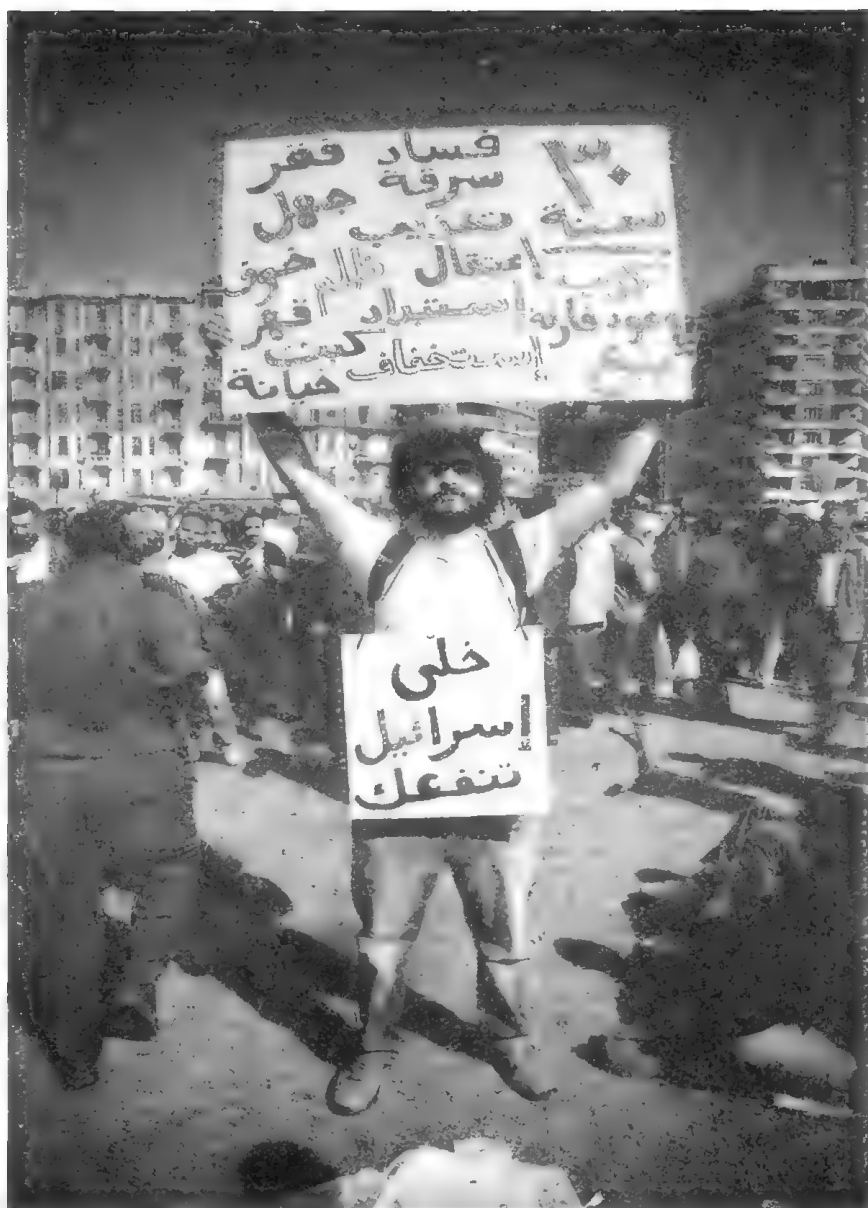 ٣٠ فساد فقر
سرقة جهل
سنة تعذيب خوف
إعتقال ظلم
وعود فارغة إستبداد قهر
إستخفاف كبت
خيانة
خلّى
إسرائيل
تنفعك